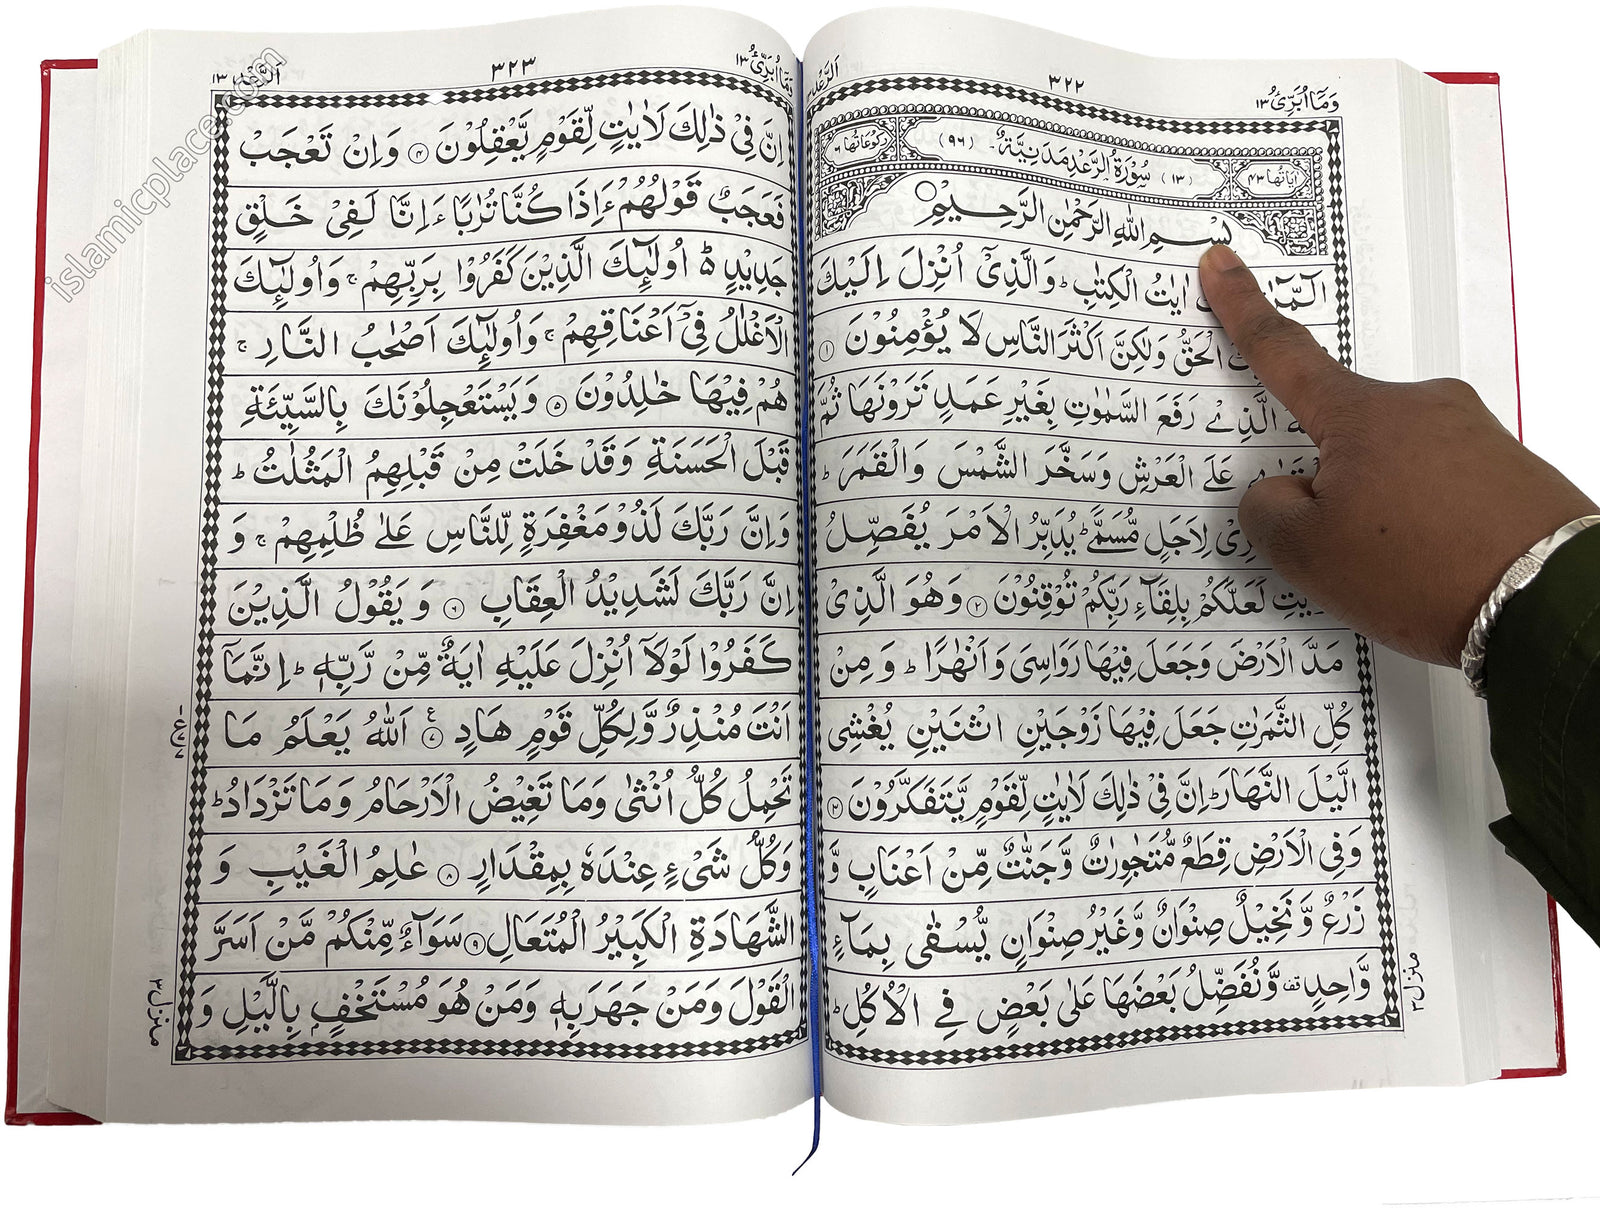 وَمَآ اُبَرِّئُ ١٣
٣٢٢
اَلرَّعْد
اٰيَاتُهَا ٤٣
(١٣) سُوْرَةُ الرَّعْدِ مَدَنِيَّةٌ (٩٦)
رُكُوْعَاتُهَا ٦
بِسْمِ اللّٰهِ الرَّحْمٰنِ الرَّحِيْمِ
الٓـمّٓرٰ اٰيٰتُ الْكِتٰبِ ؕ وَالَّذِيْۤ اُنْزِلَ اِلَيْكَ
الْحَقُّ وَلٰكِنَّ اَكْثَرَ النَّاسِ لَا يُؤْمِنُوْنَ ١
الَّذِيْ رَفَعَ السَّمٰوٰتِ بِغَيْرِ عَمَدٍ تَرَوْنَهَا ثُمَّ
عَلَى الْعَرْشِ وَسَخَّرَ الشَّمْسَ وَالْقَمَرَ ؕ
لِاَجَلٍ مُّسَمًّى ؕ يُدَبِّرُ الْاَمْرَ يُفَصِّلُ
لَعَلَّكُمْ بِلِقَآءِ رَبِّكُمْ تُوْقِنُوْنَ ٢ وَهُوَ الَّذِيْ
مَدَّ الْاَرْضَ وَجَعَلَ فِيْهَا رَوَاسِيَ وَاَنْهٰرًا ؕ وَمِنْ
كُلِّ الثَّمَرٰتِ جَعَلَ فِيْهَا زَوْجَيْنِ اثْنَيْنِ يُغْشِي
الَّيْلَ النَّهَارَ ؕ اِنَّ فِيْ ذٰلِكَ لَاٰيٰتٍ لِّقَوْمٍ يَّتَفَكَّرُوْنَ ٣
وَفِي الْاَرْضِ قِطَعٌ مُّتَجٰوِرٰتٌ وَّجَنّٰتٌ مِّنْ اَعْنَابٍ وَّ
زَرْعٌ وَّنَخِيْلٌ صِنْوَانٌ وَّغَيْرُ صِنْوَانٍ يُّسْقٰى بِمَآءٍ
وَّاحِدٍ قف وَّنُفَضِّلُ بَعْضَهَا عَلٰى بَعْضٍ فِي الْاُكُلِ ؕ
منزل ٣
وَمَآ اُبَرِّئُ ١٣
٣٢٣
اَلرَّعْد ١٣
اِنَّ فِيْ ذٰلِكَ لَاٰيٰتٍ لِّقَوْمٍ يَّعْقِلُوْنَ ٤ وَاِنْ تَعْجَبْ
فَعَجَبٌ قَوْلُهُمْ ءَاِذَا كُنَّا تُرٰبًا ءَاِنَّا لَفِيْ خَلْقٍ
جَدِيْدٍ ۵ اُولٰٓئِكَ الَّذِيْنَ كَفَرُوْا بِرَبِّهِمْ ۚ وَاُولٰٓئِكَ
الْاَغْلٰلُ فِيْۤ اَعْنَاقِهِمْ ۚ وَاُولٰٓئِكَ اَصْحٰبُ النَّارِ ۚ
هُمْ فِيْهَا خٰلِدُوْنَ ٥ وَيَسْتَعْجِلُوْنَكَ بِالسَّيِّئَةِ
قَبْلَ الْحَسَنَةِ وَقَدْ خَلَتْ مِنْ قَبْلِهِمُ الْمَثُلٰتُ ؕ
وَاِنَّ رَبَّكَ لَذُوْ مَغْفِرَةٍ لِّلنَّاسِ عَلٰى ظُلْمِهِمْ ۚ وَ
اِنَّ رَبَّكَ لَشَدِيْدُ الْعِقَابِ ٦ وَيَقُوْلُ الَّذِيْنَ
كَفَرُوْا لَوْلَاۤ اُنْزِلَ عَلَيْهِ اٰيَةٌ مِّنْ رَّبِّهٖ ؕ اِنَّمَاۤ
اَنْتَ مُنْذِرٌ وَّلِكُلِّ قَوْمٍ هَادٍ ٧ ع اَللّٰهُ يَعْلَمُ مَا
تَحْمِلُ كُلُّ اُنْثٰى وَمَا تَغِيْضُ الْاَرْحَامُ وَمَا تَزْدَادُ ؕ
وَكُلُّ شَيْءٍ عِنْدَهٗ بِمِقْدَارٍ ٨ عٰلِمُ الْغَيْبِ وَ
الشَّهَادَةِ الْكَبِيْرُ الْمُتَعَالِ ٩ سَوَآءٌ مِّنْكُمْ مَّنْ اَسَرَّ
الْقَوْلَ وَمَنْ جَهَرَ بِهٖ وَمَنْ هُوَ مُسْتَخْفٍۭ بِالَّيْلِ وَ
منزل ٣
islamicplace.com